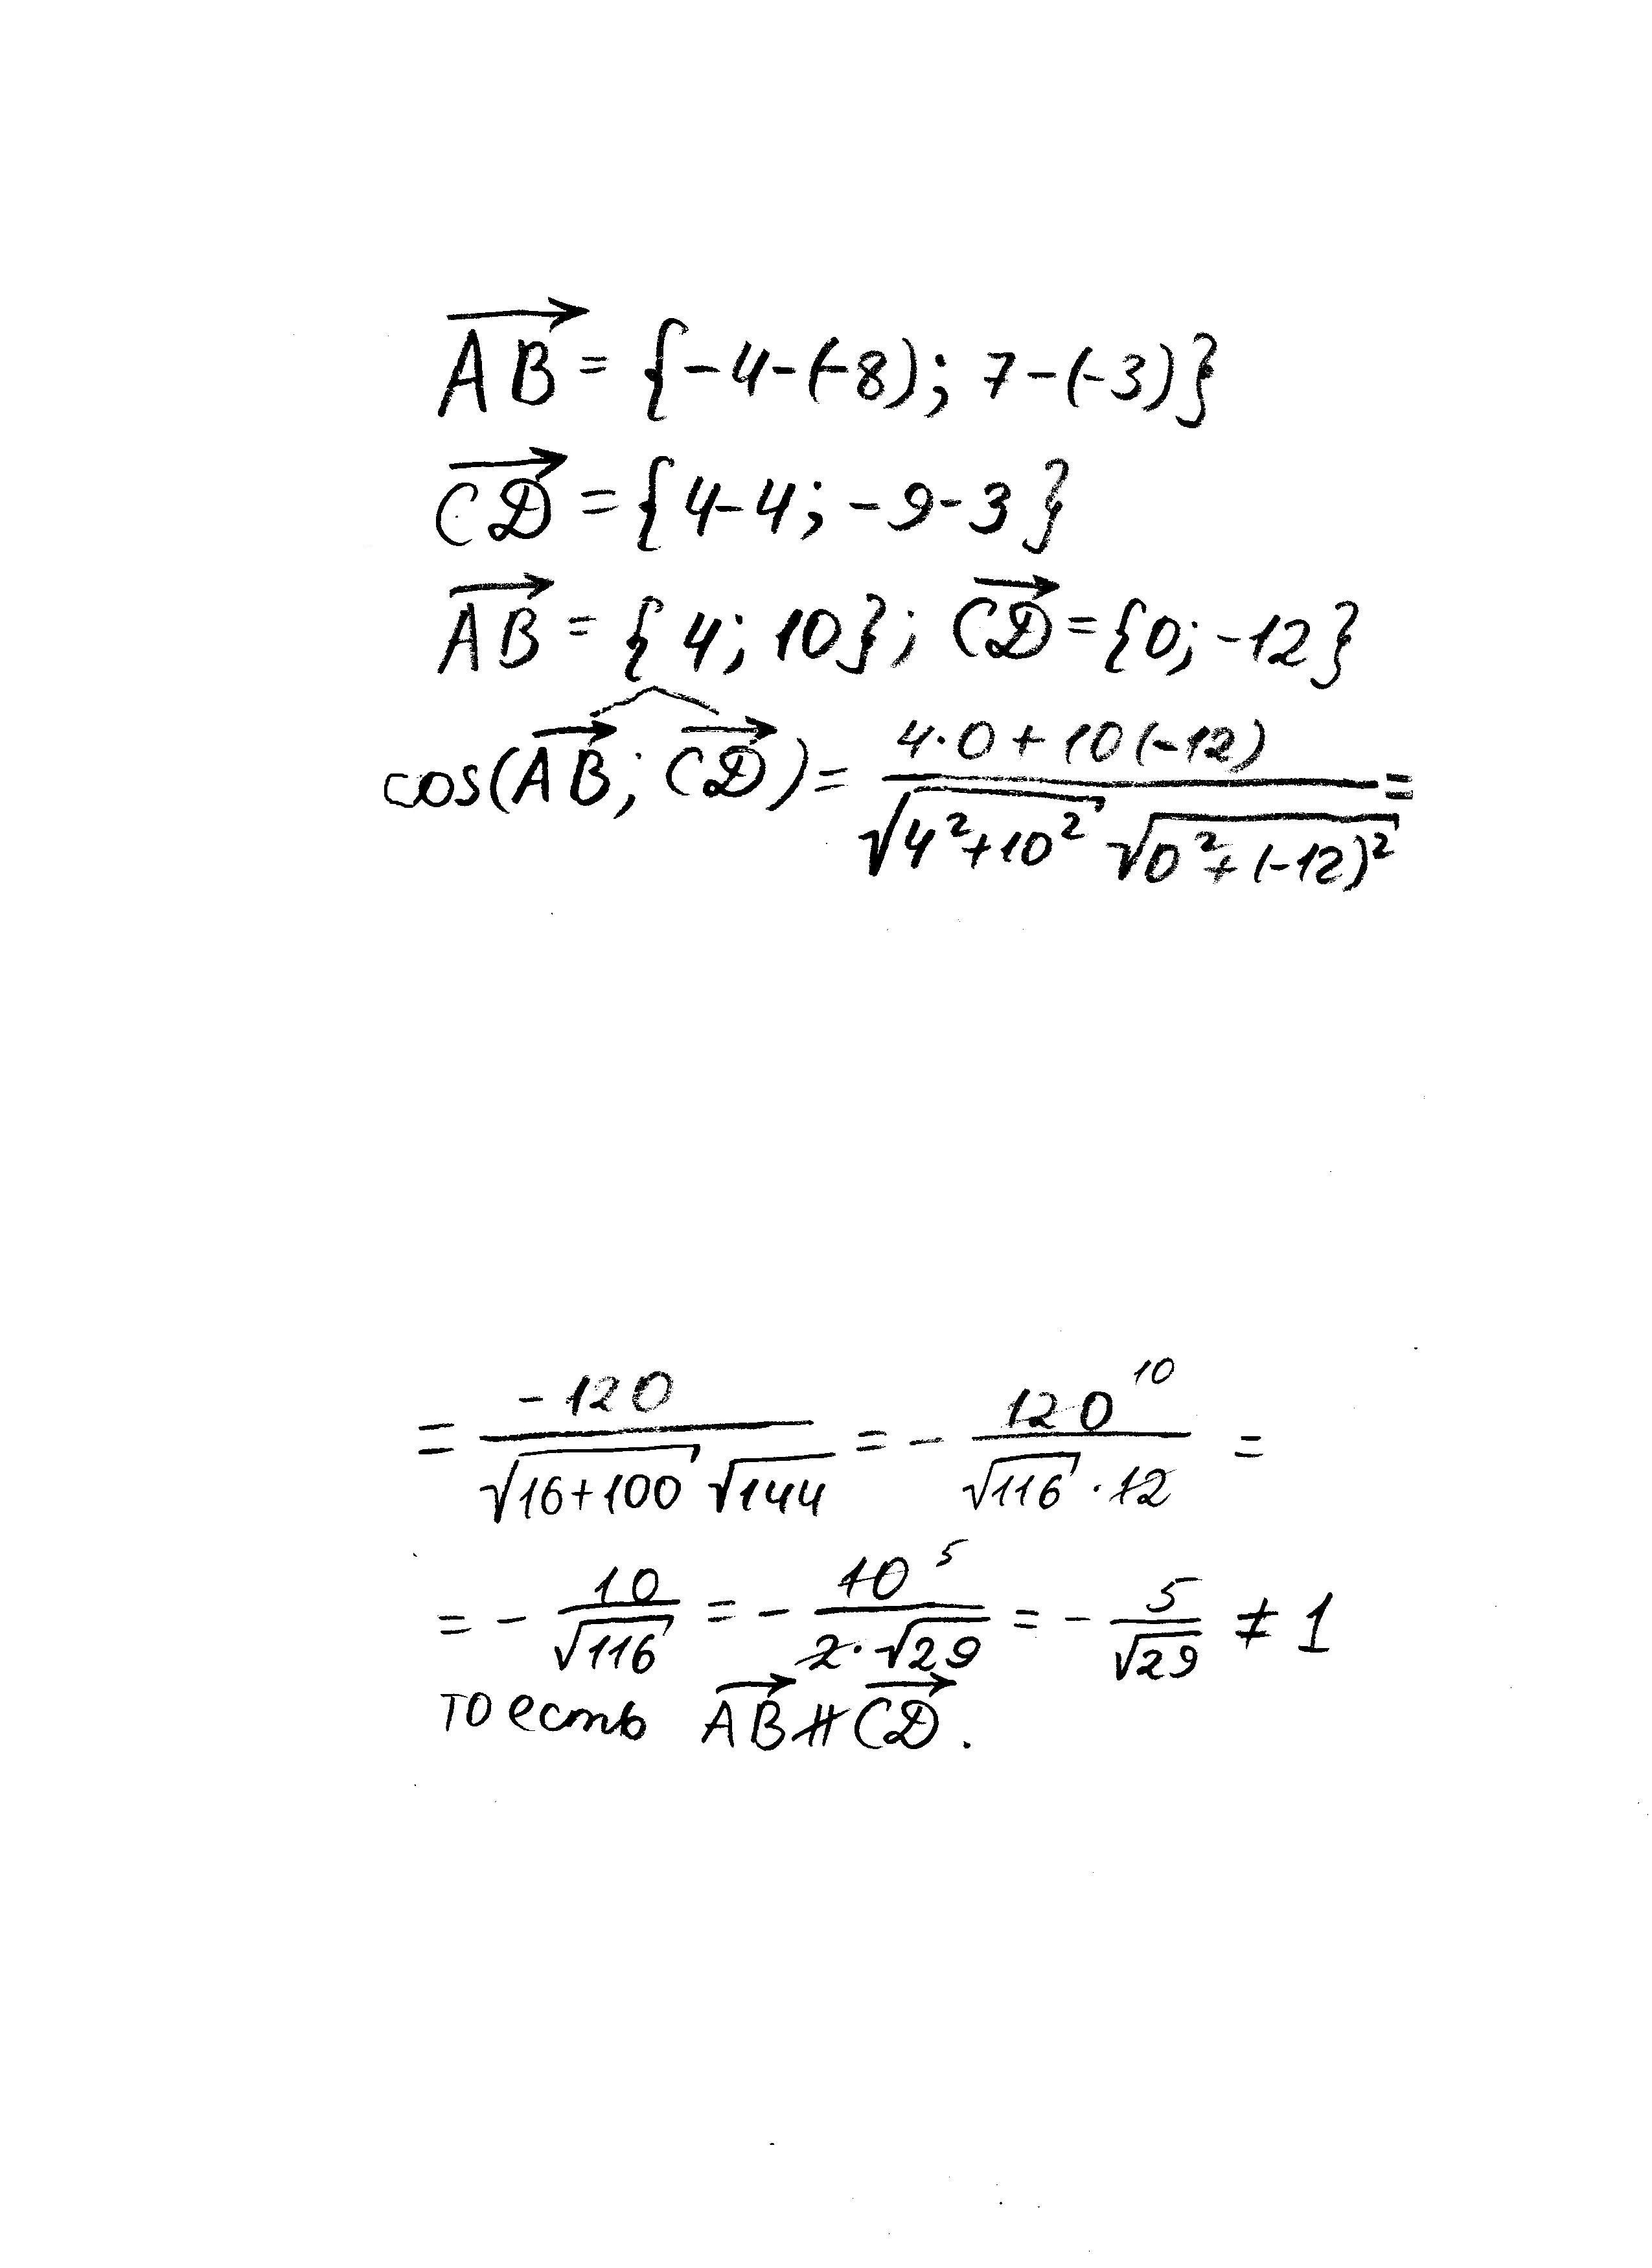 $\overrightarrow{AB} = \{-4-(-8); 7-(-3)\}$
$\overrightarrow{CD} = \{4-4; -9-3\}$
$\overrightarrow{AB} = \{4; 10\}; \overrightarrow{CD} = \{0; -12\}$
$\cos(\widehat{\overrightarrow{AB}; \overrightarrow{CD}}) = \frac{4 \cdot 0 + 10(-12)}{\sqrt{4^2+10^2} \sqrt{0^2+(-12)^2}} =$
$= \frac{-120}{\sqrt{16+100} \sqrt{144}} = - \frac{\cancel{120}^{10}}{\sqrt{116} \cdot \cancel{12}} =$
$= - \frac{10}{\sqrt{116}} = - \frac{\cancel{10}^{5}}{\cancel{2} \cdot \sqrt{29}} = - \frac{5}{\sqrt{29}} \neq 1$
то есть $\overrightarrow{AB} \nparallel \overrightarrow{CD}$.